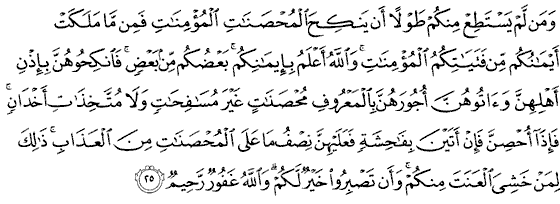 وَمَن لَّمْ يَسْتَطِعْ مِنكُمْ طَوْلًا أَن يَنكِحَ الْمُحْصَنَاتِ الْمُؤْمِنَاتِ فَمِن مَّا مَلَكَتْ
أَيْمَانُكُم مِّن فَتَيَاتِكُمُ الْمُؤْمِنَاتِ ۚ وَاللَّهُ أَعْلَمُ بِإِيمَانِكُم ۚ بَعْضُكُم مِّن بَعْضٍ ۚ فَانكِحُوهُنَّ بِإِذْنِ
أَهْلِهِنَّ وَءَاتُوهُنَّ أُجُورَهُنَّ بِالْمَعْرُوفِ مُحْصَنَاتٍ غَيْرَ مُسَافِحَاتٍ وَلَا مُتَّخِذَاتِ أَخْدَانٍ ۚ
فَإِذَا أُحْصِنَّ فَإِنْ أَتَيْنَ بِفَاحِشَةٍ فَعَلَيْهِنَّ نِصْفُ مَا عَلَى الْمُحْصَنَاتِ مِنَ الْعَذَابِ ۚ ذَٰلِكَ
لِمَنْ خَشِيَ الْعَنَتَ مِنكُمْ ۚ وَأَن تَصْبِرُوا خَيْرٌ لَّكُمْ ۗ وَاللَّهُ غَفُورٌ رَّحِيمٌ ٢٥